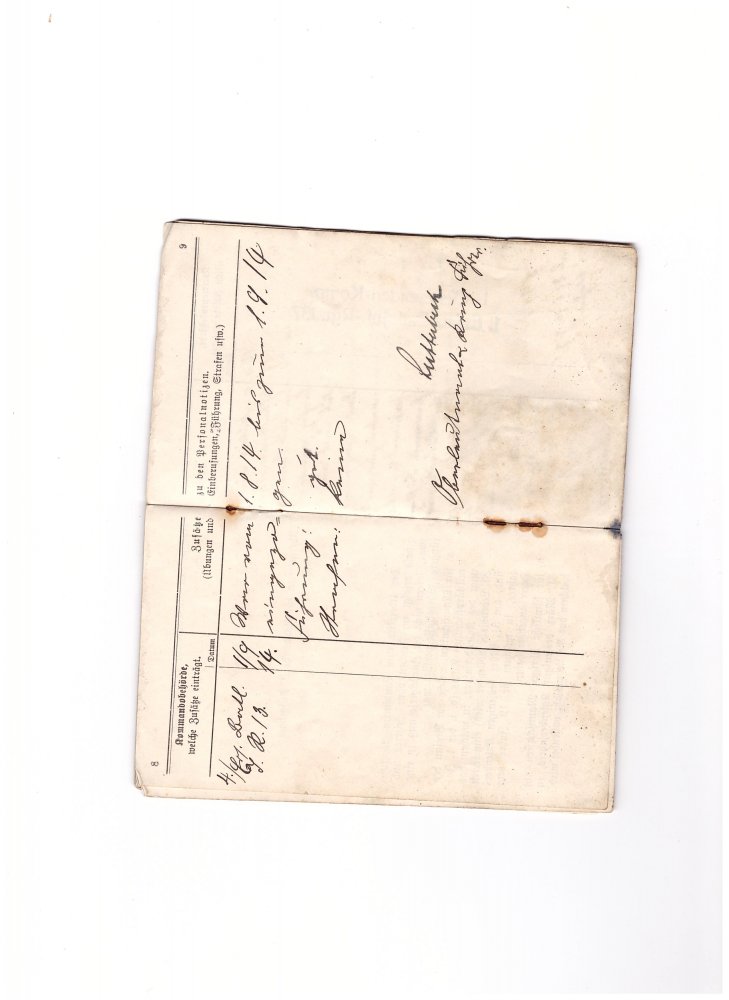 8
Kommandobehörde,
welche Zusätze einträgt.
Datum
Zusätze zu den Personalnotizen.
(Übungen und Einberufungen, Führung, Strafen usw.)
9
4./Ers. Batl. 1/9 War vom 1.8.14 bis zum 1.9.14
R. 13. 14. eingezo= gen.
Führung: gut.
Strafen: keine
Oberleutnant u. Komp. Führ.